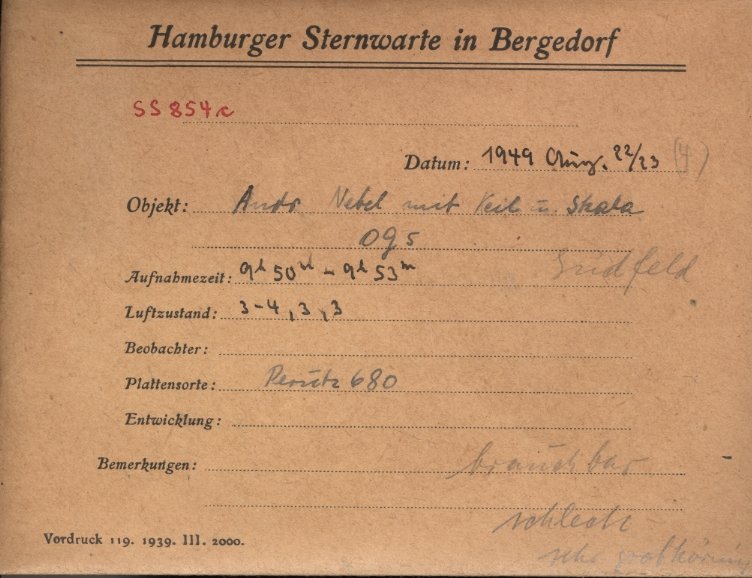 Hamburger Sternwarte in Bergedorf
SS 854c
Datum: 1949 Aug. 22/23 (4)
Objekt: Andr Nebel mit Keil u. Skala
Aufnahmezeit: 9h 50m - 9h 53m
Luftzustand: 3-4, 3, 3
Beobachter:
Plattensorte: Perutz 680
Entwicklung:
Bemerkungen: brauchbar
schlecht
sehr grobkörnig
Vordruck 119. 1939. III. 2000.